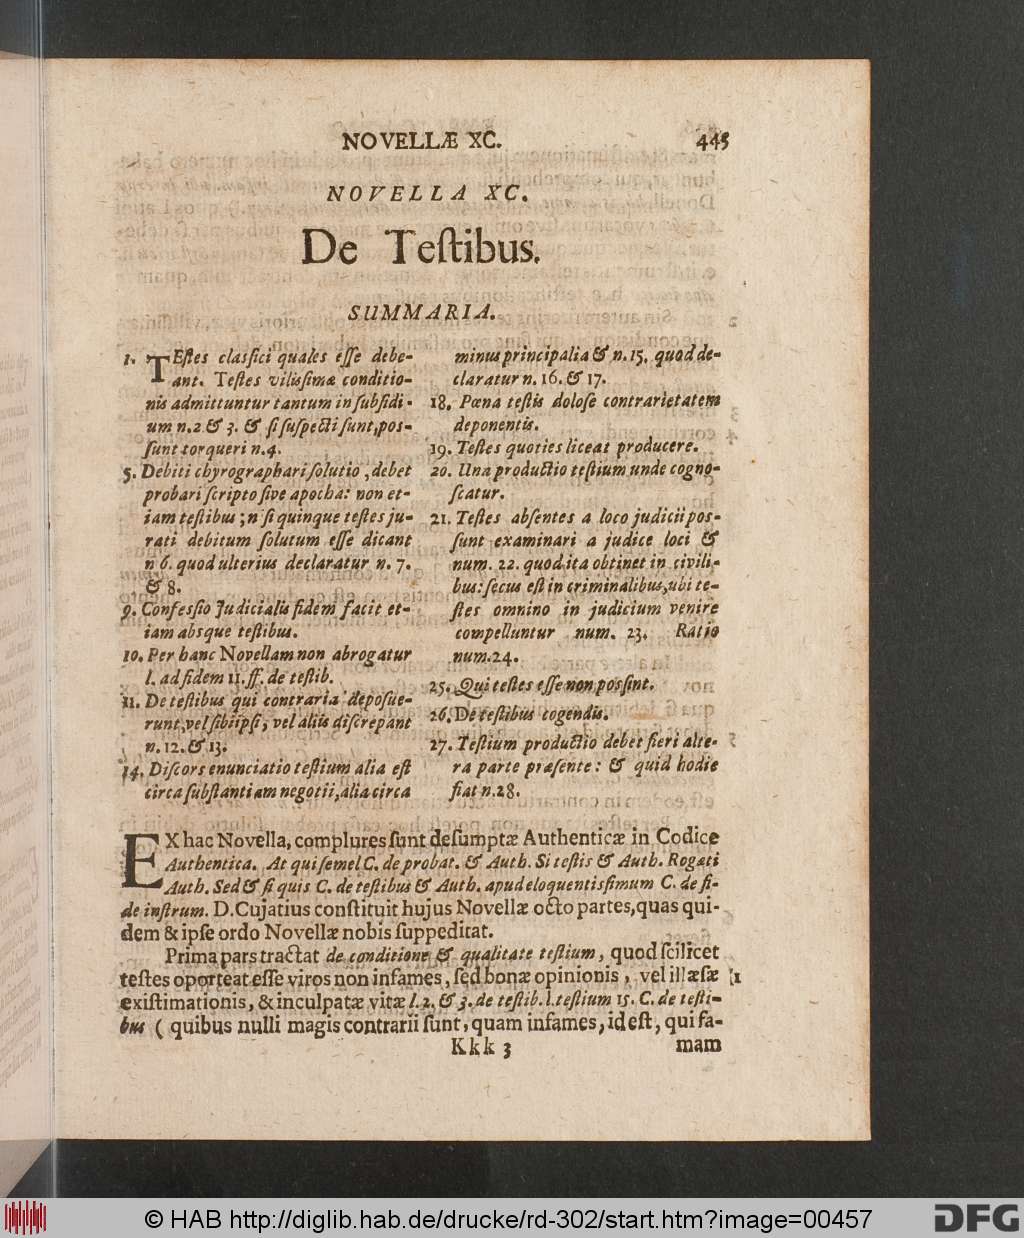 NOVELLÆ XC. 445
NOVELLA XC.
De Teſtibus.
SUMMARIA.
1. TEſtes claſſici quales eſſe debe-
ant. Teſtes viliſſimæ conditio-
nis admittuntur tantum in ſubſidi-
um n. 2 & 3. & ſi ſuſpecti ſunt, poſ-
ſunt torqueri n. 4.
5. Debiti chyrographari ſolutio, debet
probari ſcripto ſive apocha: non et-
iam teſtibus; nſi quinque teſtes ju-
rati debitum ſolutum eſſe dicant
n 6. quod ulterius declaratur n. 7.
& 8.
9. Confeſſio Judicialis fidem facit et-
iam absque teſtibus.
10. Per hanc Novellam non abrogatur
l. ad fidem 11. ff. de teſtib.
11. De teſtibus qui contraria depoſue-
runt, vel ſibi ipſi, vel aliis diſcrepant
n. 12. & 13.
14. Diſcors enunciatio teſtium alia eſt
circa ſubſtantiam negotii, alia circa
minus principalia & n. 15. quod de-
claratur n. 16. & 17.
18. Pœna teſtis doloſe contrarietatem
deponentis.
19. Teſtes quoties liceat producere.
20. Una productio teſtium unde cogno-
ſcatur.
21. Teſtes abſentes a loco judicii poſ-
ſunt examinari a judice loci &
num. 22. quod ita obtinet in civili-
bus: ſecus eſt in criminalibus, ubi te-
ſtes omnino in judicium venire
compelluntur num. 23. Ratio
num. 24.
25. Qui teſtes eſſe non poſſint.
26. De teſtibus cogendis.
27. Teſtium productio debet fieri alte-
ra parte præſente: & quid hodie
fiat n. 28.
EX hac Novella, complures ſunt deſumptæ Authenticæ in Codice
Authentica. At qui ſemel C. de probat. & Auth. Si teſtis & Auth. Rogati
Auth. Sed & ſi quis C. de teſtibus & Auth. apud eloquentiſſimum C. de fi-
de inſtrum. D. Cujatius conſtituit hujus Novellæ octo partes, quas qui-
dem & ipſe ordo Novellæ nobis ſuppeditat.
Prima pars tractat de conditione & qualitate teſtium, quod ſcilicet
teſtes oporteat eſſe viros non infames, ſed bonæ opinionis, vel illæſæ 1
exiſtimationis, & inculpatæ vitæ l. 2. & 3. de teſtib. l. teſtium 15. C. de teſti-
bus ( quibus nulli magis contrarii ſunt, quam infames, id eſt, qui fa-
Kkk 3 mam
© HAB http://diglib.hab.de/drucke/rd-302/start.htm?image=00457
DFG